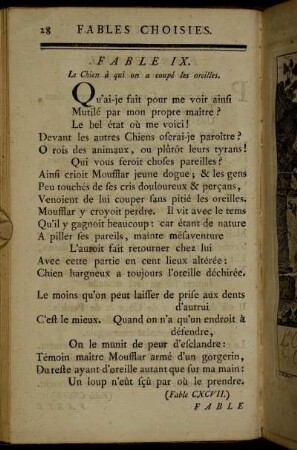 28 FABLES CHOISIES.
FABLE IX.
Le Chien à qui on a coupé les oreilles.
Qu'ai-je fait pour me voir ainsi
Mutilé par mon propre maître?
Le bel état où me voici!
Devant les autres Chiens oserai-je paroître?
O rois des animaux, ou plûtôt leurs tyrans!
Qui vous feroit choses pareilles?
Ainsi crioit Moufflar jeune dogue; & les gens
Peu touchés de ses cris douloureux & perçans,
Venoient de lui couper sans pitié les oreilles.
Moufflar y croyoit perdre. Il vit avec le tems
Qu'il y gagnoit beaucoup: car étant de nature
A piller ses pareils, mainte mésaventure
L'auroit fait retourner chez lui
Avec cette partie en cent lieux altérée:
Chien hargneux a toujours l'oreille déchirée.
Le moins qu'on peut laisser de prise aux dents
d'autrui
C'est le mieux. Quand on n'a qu'un endroit à
défendre,
On le munit de peur d'esclandre:
Témoin maître Moufflar armé d'un gorgerin,
Du reste ayant d'oreille autant que sur ma main:
Un loup n'eût sçû par où le prendre.
(Fable CXCVII.)
FABLE